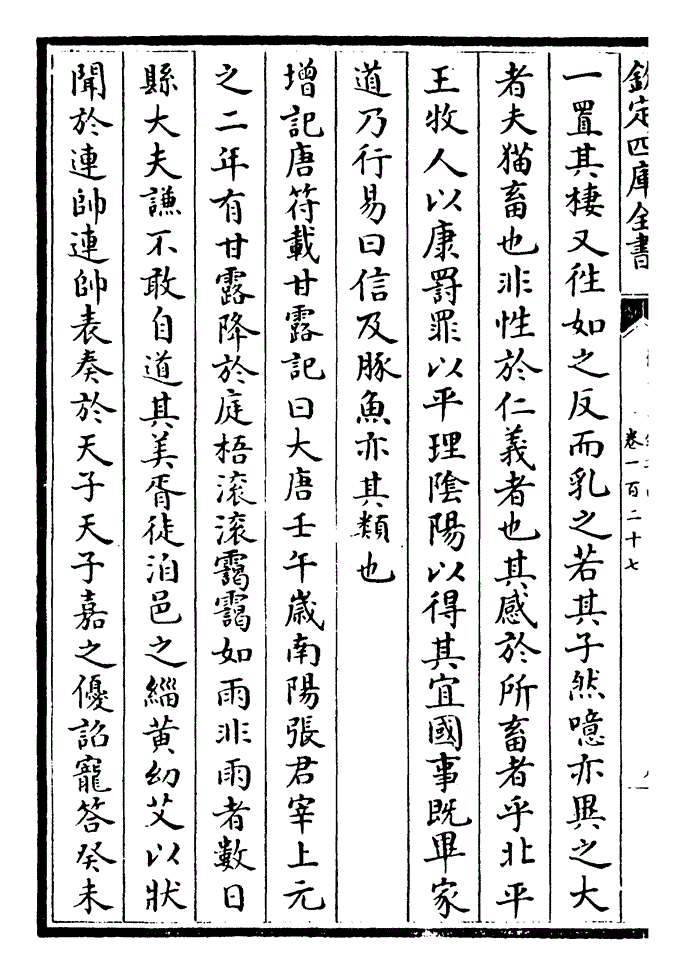 欽定四庫全書
卷一百二十七
一置其棲又徃如之反而乳之若其子然噫亦異之大
者夫猫畜也非性於仁義者也其感於所畜者乎北平
王牧人以康罰罪以平理隂陽以得其宜國事既畢家
道乃行易曰信及豚魚亦其類也
增記唐符載甘露記曰大唐壬午嵗南陽張君宰上元
之二年有甘露降於庭梧滚滚靄靄如雨非雨者數日
縣大夫謙不敢自道其美胥徒洎邑之緇黄幼艾以狀
聞於連帥連帥表奏於天子天子嘉之優詔寵答癸未